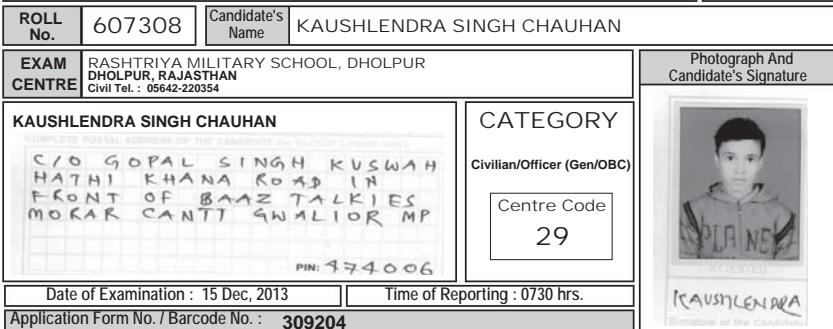 ROLL No. 607308 Candidate's Name KAUSHLENDRA SINGH CHAUHAN
EXAM CENTRE
RASHTRIYA MILITARY SCHOOL, DHOLPUR
DHOLPUR, RAJASTHAN
Civil Tel. : 05642-220354
Photograph And
Candidate's Signature
KAUSHLENDRA SINGH CHAUHAN
COMPLETE POSTAL ADDRESS OF THE CANDIDATE IN BLOCK
C/O GOPAL SINGH KUSWAH
HATHI KHANA ROAD IN
FRONT OF BAAZ TALKIES
MORAR CANTT GWALIOR MP
PIN: 474006
CATEGORY
Civilian/Officer (Gen/OBC)
Centre Code
29
PLANE
ATTESTED
KAUSHLENDRA
Signature of the Candidate
Date of Examination : 15 Dec, 2013 Time of Reporting : 0730 hrs.
Application Form No. / Barcode No. : 309204